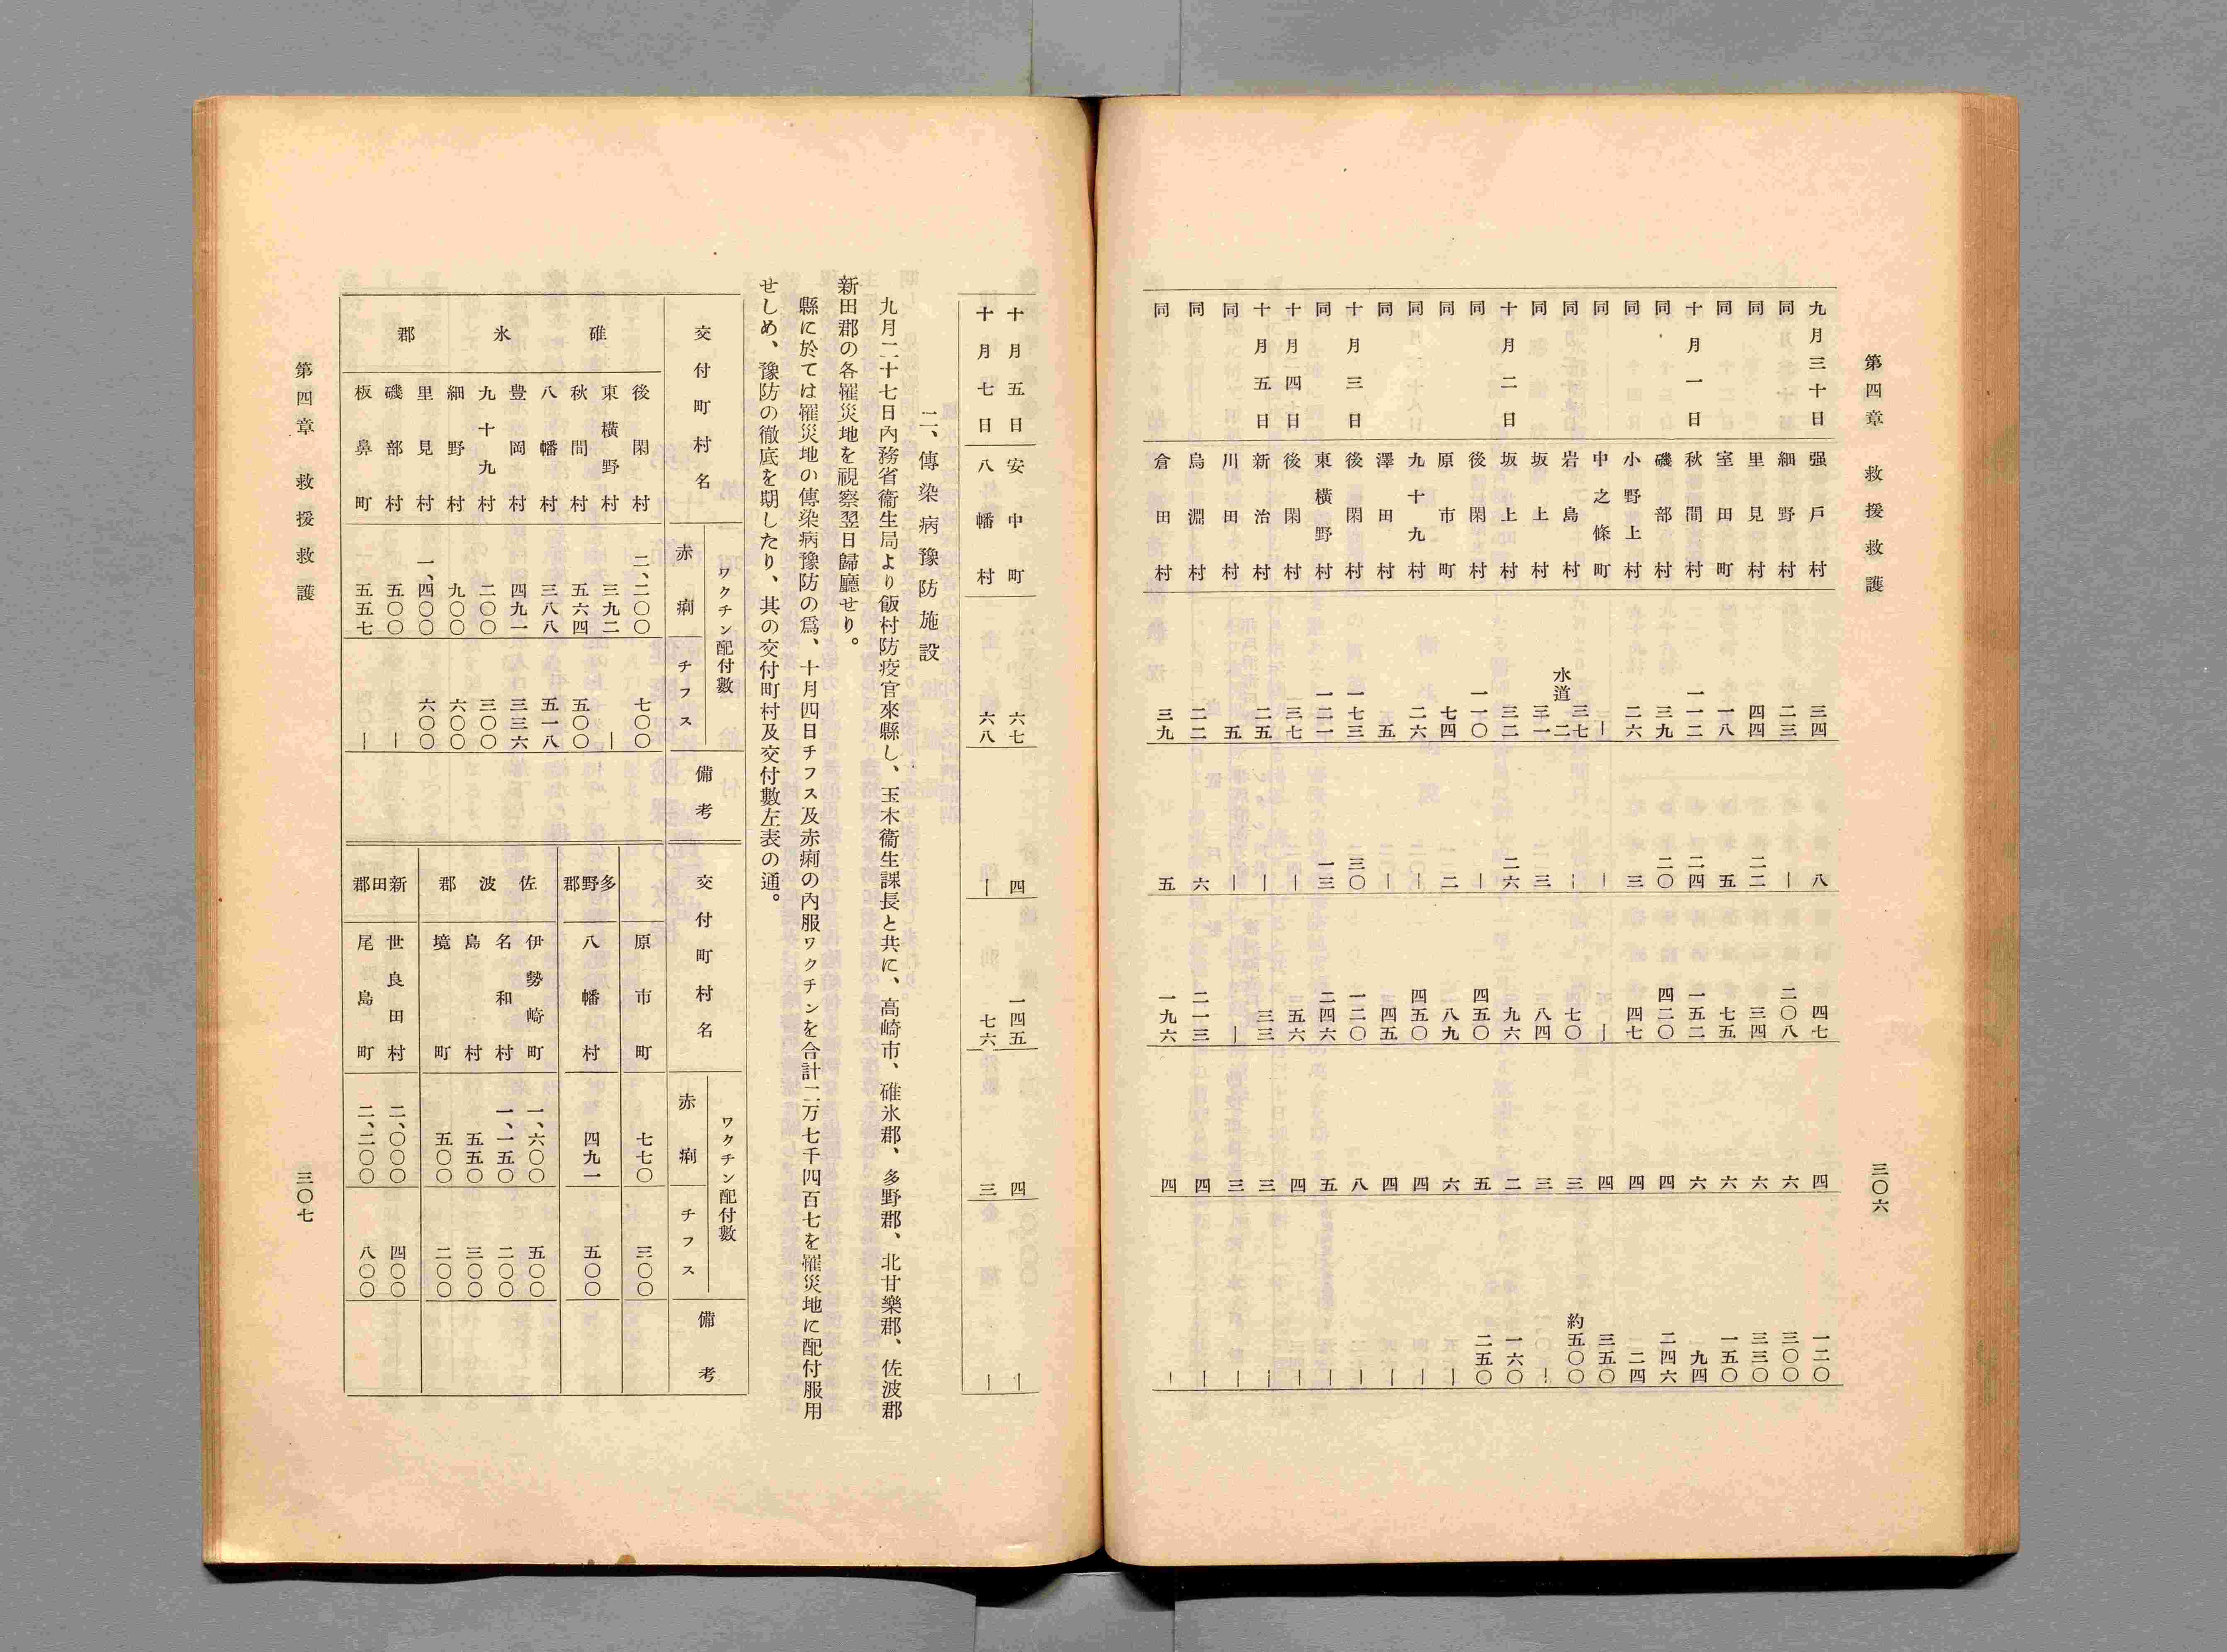 第四章 救援救護
三〇六
九月三十日 强戸村 三四 八 四七 四 一二〇
同 細野村 二三 ｜ 二〇八 六 三〇〇
同 里見村 四四 二二 三四 六 三三〇
同 室田町 一八 五 七五 六 一五〇
十月一日 秋間村 一一二 二四 一五二 六 九四
同 磯部村 三九 二〇 四二〇 四 二四六
同 小野上村 二六 三 四七 四 二四
同 中之條町 ｜ ｜ ｜ 四 三五〇
同 岩島村 三七 水道二 ｜ 七〇 三 約五〇〇
同 坂上村 三一 三 八四 三 ｜
十月二日 坂上村 三二 二六 九六 二 一六〇
同 後閑村 一一〇 ｜ 四五〇 五 二五〇
同 原市町 七四 二 八九 六 ｜
同 九十九村 二六 ｜ 四五〇 四 ｜
同 澤田村 五 ｜ 四五 四 ｜
十月三日 後閑村 一七三 三〇 一二〇 八 ｜
同 東横野村 一二一 一三 二四六 五 ｜
十月四日 後閑村 三七 ｜ 五六 四 ｜
十月五日 新治村 二五 ｜ 三三 三 ｜
同 川田村 五 ｜ ｜ 三 ｜
同 烏淵村 二二 六 二一三 四 ｜
同 倉田村 三九 五 一九六 四 ｜
十月五日 安中町 六七 四 一四五 四 ｜
十月七日 八幡村 六八 ｜ 七六 三 ｜
二、傳染病豫防施設
九月二十七日內務省衞生局より飯村防疫官來縣し、玉木衞生課長と共に、高崎市、碓氷郡、多野郡、北甘樂郡、佐波郡
新田郡の各罹災地を視察翌日歸廳せり。
縣に於ては罹災地の傳染病豫防の爲、十月四日チフス及赤痢の內服ワクチンを合計二万七千四百七を罹災地に配付服用
せしめ、豫防の徹底を期したり、其の交付町村及交付數左表の通。
交付町村名 ワクチン配付數 赤痢 チフス 備考
碓氷郡
後閑村 二、二〇〇 七〇〇
東橫野村 三九二 ｜
秋間村 五六四 五〇〇
八幡村 三八八 五一八
豊岡村 四九一 三三六
九十九村 二〇〇 三〇〇
細野村 九〇〇 六〇〇
里見村 一、四〇〇 六〇〇
磯部村 五〇〇 ｜
板鼻町 五五七 ｜
交付町村名 ワクチン配付數 赤痢 チフス 備考
原市町 七七〇 三〇〇
多野郡 八幡村 四九一 五〇〇
佐波郡
伊勢崎町 一、六〇〇 五〇〇
名和村 一、一五〇 二〇〇
島村 五五〇 三〇〇
境町 五〇〇 二〇〇
新田郡
世良田村 二、〇〇〇 四〇〇
尾島町 二、二〇〇 八〇〇
第四章 救援救護
三〇七